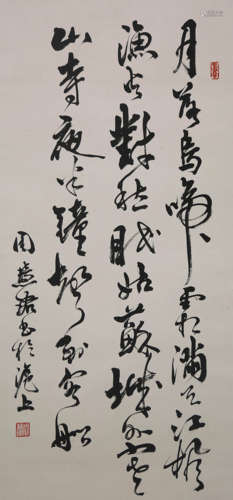 月落烏啼霜滿天江楓
漁火對愁眠姑蘇城外寒
山寺夜半鐘聲到客船
周慧珺書於滬上